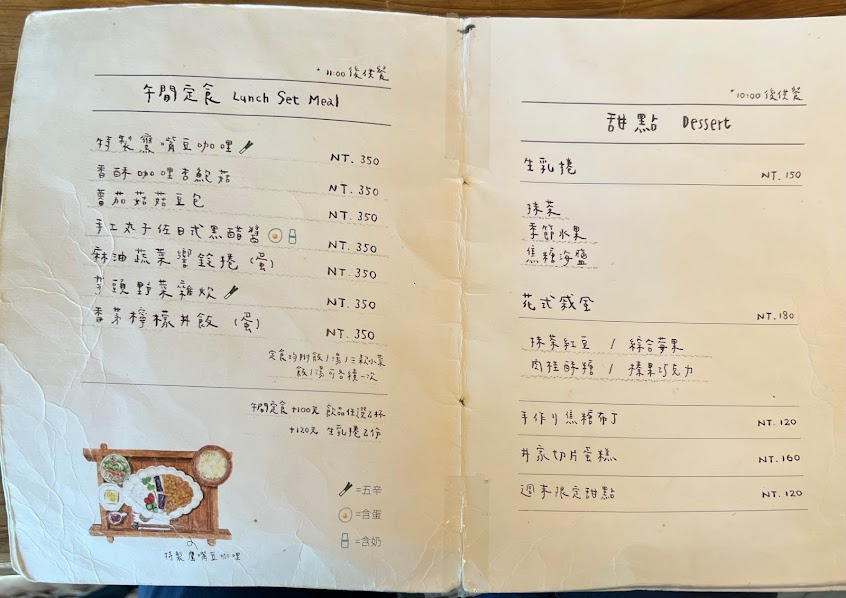 *11:00 後供餐
午間定食 Lunch Set Meal
特製鷹嘴豆咖哩 NT. 350
香酥咖哩杏鮑菇 NT. 350
蕃茄菇菇豆包 NT. 350
手工丸子佐日式黑醋醬 NT. 350
麻油蔬菜響鈴捲 (蛋) NT. 350
芋頭野菜雜炊 NT. 350
香茅檸檬丼飯 (蛋) NT. 350
定食均附飯/湯/三款小菜
飯/湯可各續一次
午間定食+100元 飲品任選乙杯
+120元 生乳捲乙份
=五辛
=含蛋
=含奶
特製鷹嘴豆咖哩
*10:00 後供餐
甜點 Dessert
生乳捲 NT. 150
抹茶
季節水果
焦糖海鹽
花式戚風 NT. 180
抹茶紅豆 / 綜合莓果
肉桂酥糖 / 榛果巧克力
手作り焦糖布丁 NT. 120
丼家切片蛋糕 NT. 160
週末限定甜點 NT. 120